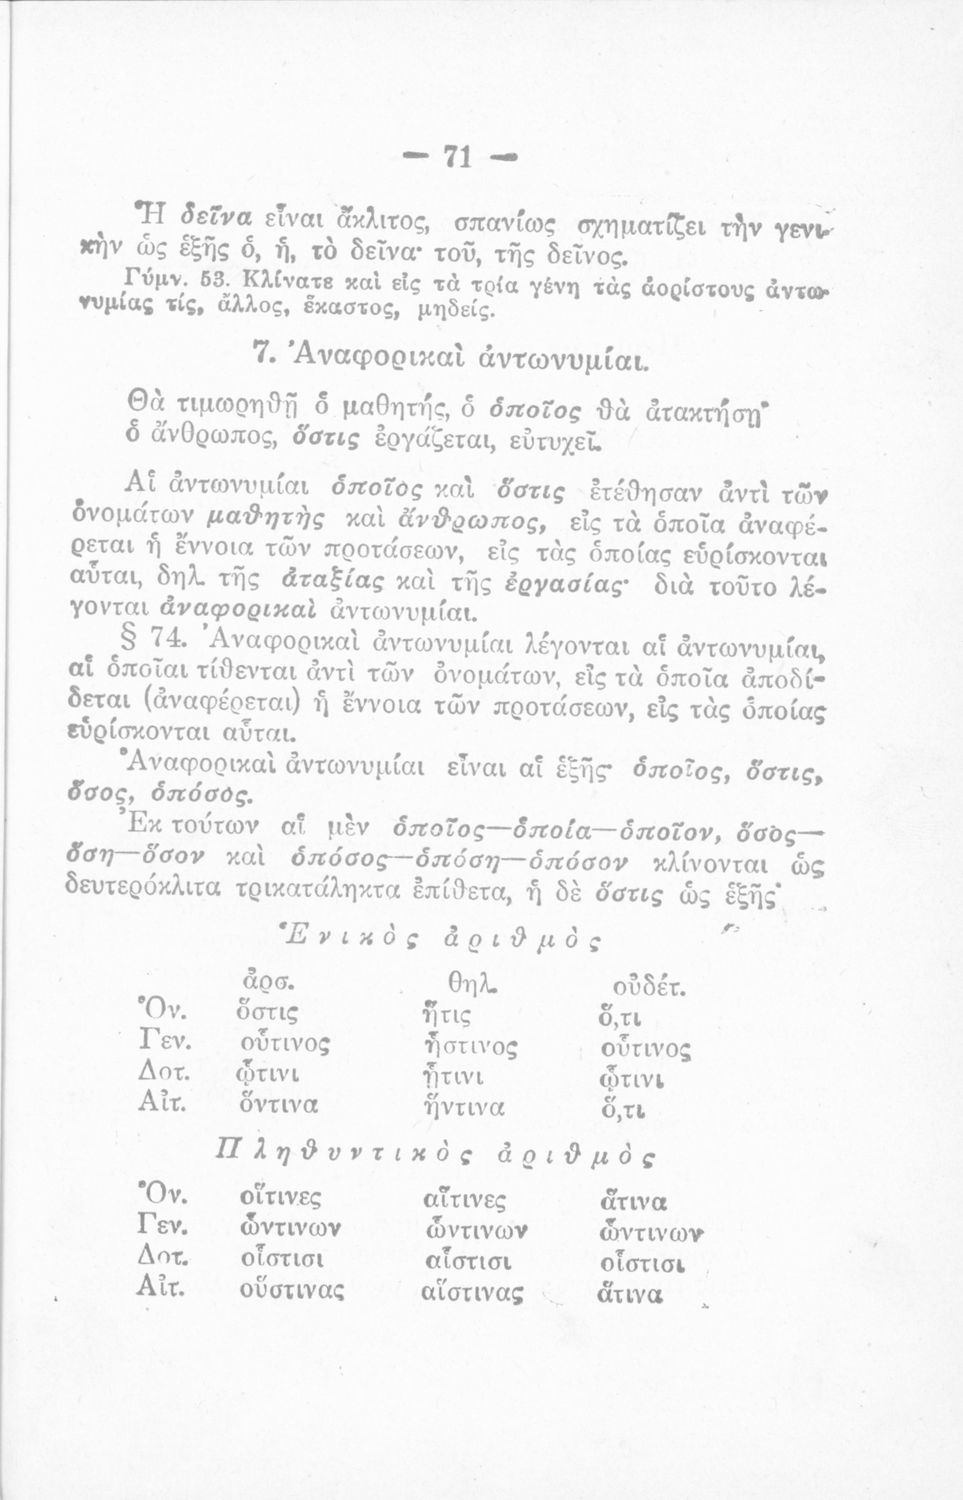 — 71 —
Ἡ δεῖνα εἶναι ἄκλιτος, σπανίως σχηματίζει τὴν γενι-
κὴν ὡς ἑξῆς ὁ, ἡ, τὸ δεῖνα· τοῦ, τῆς δεῖνος.
Γύμν. 53. Κλίνατε καὶ εἰς τὰ τρία γένη τὰς ἀορίστους ἀντω-
νυμίας τίς, ἄλλος, ἕκαστος, μηδείς.
7. Ἀναφορικαὶ ἀντωνυμίαι.
Θὰ τιμωρηθῇ ὁ μαθητής, ὁ ὁποῖος θὰ ἀτακτήσῃ·
ὁ ἄνθρωπος, ὅστις ἐργάζεται, εὐτυχεῖ.
Αἱ ἀντωνυμίαι ὁποῖος καὶ ὅστις ἐτέθησαν ἀντὶ τῶν
ὀνομάτων μαθητὴς καὶ ἄνθρωπος, εἰς τὰ ὁποῖα ἀναφέ-
ρεται ἡ ἔννοια τῶν προτάσεων, εἰς τὰς ὁποίας εὑρίσκονται
αὗται, δηλ. τῆς ἀταξίας καὶ τῆς ἐργασίας· διὰ τοῦτο λέ-
γονται ἀναφορικαὶ ἀντωνυμίαι.
§ 74. Ἀναφορικαὶ ἀντωνυμίαι λέγονται αἱ ἀντωνυμίαι,
αἱ ὁποῖαι τίθενται ἀντὶ τῶν ὀνομάτων, εἰς τὰ ὁποῖα ἀποδί-
δεται (ἀναφέρεται) ἡ ἔννοια τῶν προτάσεων, εἰς τὰς ὁποίας
εὑρίσκονται αὗται.
Ἀναφορικαὶ ἀντωνυμίαι εἶναι αἱ ἑξῆς· ὁποῖος, ὅστις,
ὅσος, ὁπόσος.
Ἐκ τούτων αἱ μὲν ὁποῖος—ὁποία—ὁποῖον, ὅσος—
ὅση—ὅσον καὶ ὁπόσος—ὁπόση—ὁπόσον κλίνονται ὡς
δευτερόκλιτα τρικατάληκτα ἐπίθετα, ἡ δὲ ὅστις ὡς ἑξῆς·
Ἑνικὸς ἀριθμὸς
ἀρσ. θηλ. οὐδέτ.
Ὀν. ὅστις ἥτις ὅ,τι
Γεν. οὗτινος ἧστινος οὗτινος
Δοτ. ᾧτινι ᾗτινι ᾧτινι
Αἰτ. ὅντινα ἥντινα ὅ,τι
Πληθυντικὸς ἀριθμὸς
Ὀν. οἵτινες αἵτινες ἅτινα
Γεν. ὧντινων ὧντινων ὧντινων
Δοτ. οἷστισι αἷστισι οἷστισι
Αἰτ. οὕστινας αἵστινας ἅτινα